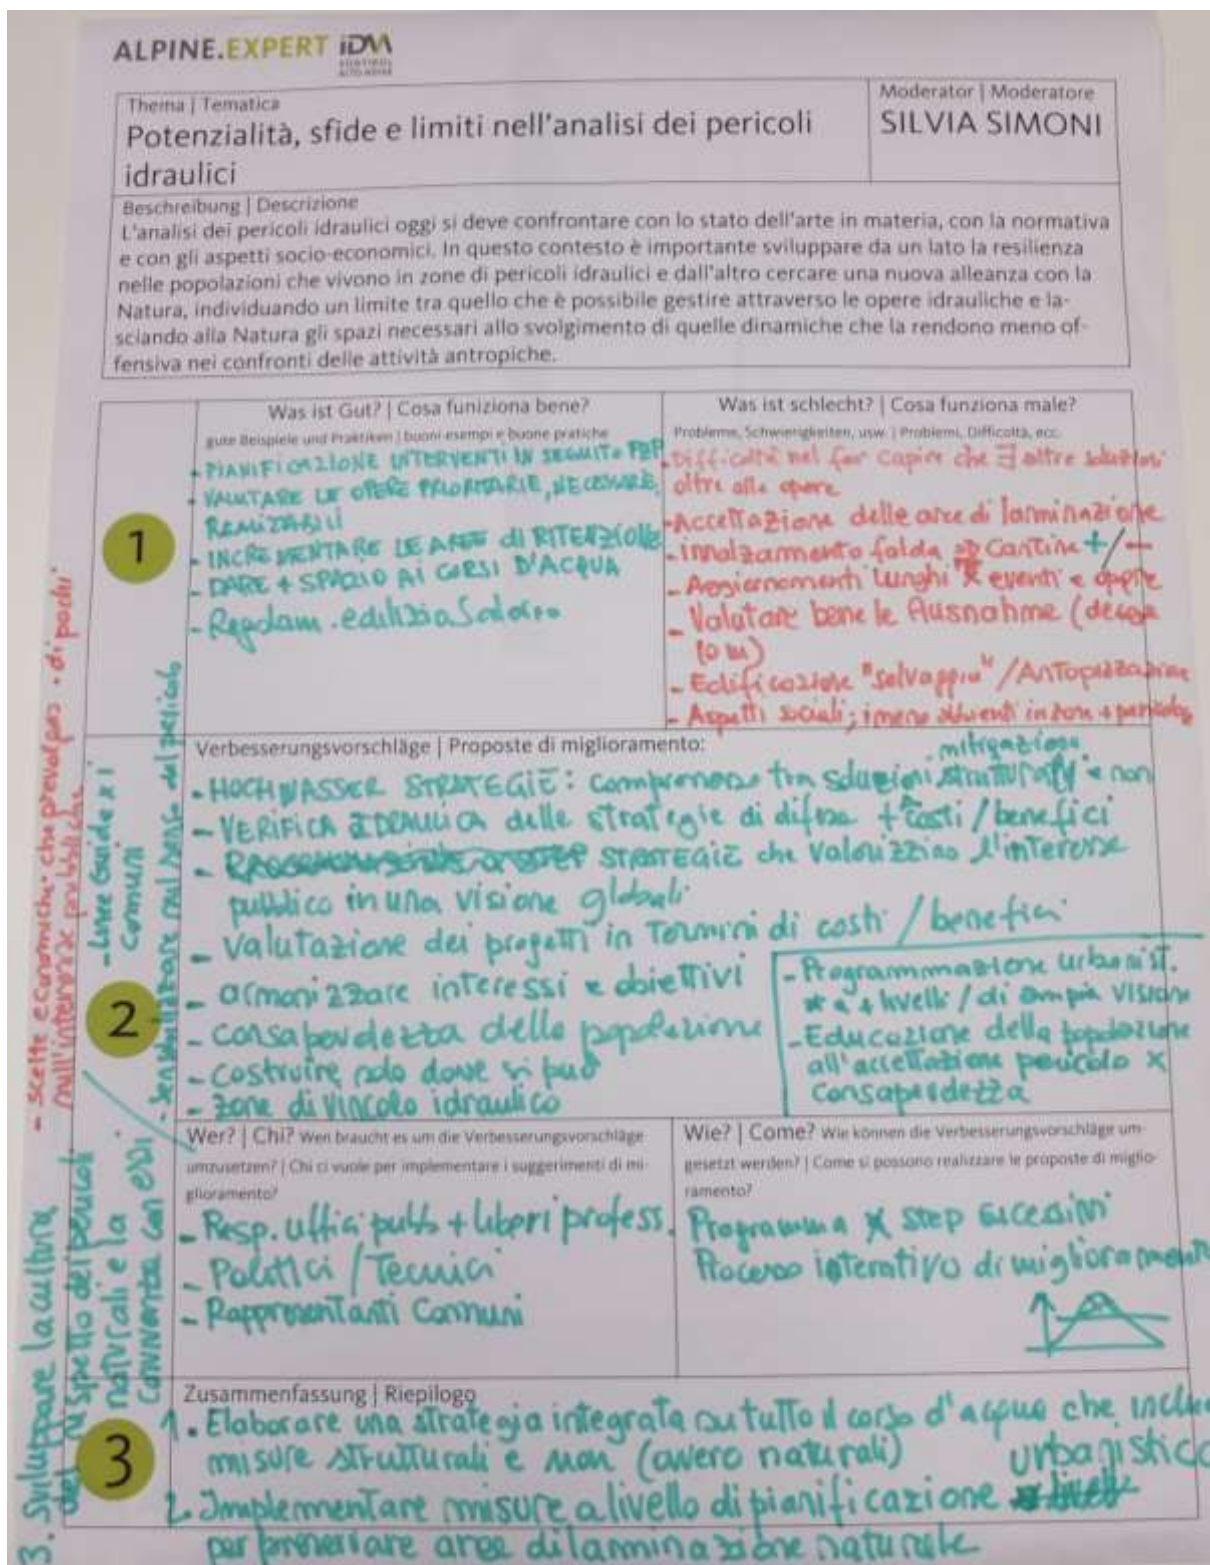 ALPINE.EXPERT IDM
SÜDTIROL
ALTO ADIGE
Thema | Tematica
Potenzialità, sfide e limiti nell'analisi dei pericoli
idraulici
Moderator | Moderatore
SILVIA SIMONI
Beschreibung | Descrizione
L'analisi dei pericoli idraulici oggi si deve confrontare con lo stato dell'arte in materia, con la normativa
e con gli aspetti socio-economici. In questo contesto è importante sviluppare da un lato la resilienza
nelle popolazioni che vivono in zone di pericoli idraulici e dall'altro cercare una nuova alleanza con la
Natura, individuando un limite tra quello che è possibile gestire attraverso le opere idrauliche e la-
sciando alla Natura gli spazi necessari allo svolgimento di quelle dinamiche che la rendono meno of-
fensiva nei confronti delle attività antropiche.
1
Was ist Gut? | Cosa funiziona bene?
gute Beispiele und Praktiken | buoni esempi e buone pratiche
- PIANIFICAZIONE INTERVENTI IN SEGUITO PZP
- VALUTARE LE OPERE PRIORITARIE, NECESSARIE,
REALIZZABILI
- INCREMENTARE LE AREE di RITENZIONE
- DARE + SPAZIO AI CORSI D'ACQUA
- Regolam. edilizia Salorno
Was ist schlecht? | Cosa funziona male?
Probleme, Schwierigkeiten, usw. | Problemi, Difficoltà, ecc.
- Difficoltà nel far capire che ∃ altre soluzioni
oltre alle opere
- Accettazione delle aree di laminazione
- innalzamento falda Cantine +/-
- Aggiornamenti lunghi x eventi e opere
- Valutare bene le Ausnahme (deroga
10 m)
- Edificazione "selvaggia" / Antropizzazione
- Aspetti sociali; i meno abbienti in zone + pericolose
- scelte economiche che prevalgono di pochi
sull'interesse pubblico
2
Verbesserungsvorschläge | Proposte di miglioramento:
mitigazione
- HOCHWASSER STRATEGIE: Compromesso tra soluzioni strutturali e non
- VERIFICA IDRAULICA delle strategie di difesa + costi / benefici
- STRATEGIE che valorizzino l'interesse
pubblico in una visione globale
- valutazione dei progetti in termini di costi / benefici
- armonizzare interessi e obiettivi
- consapevolezza della popolazione
- costruire solo dove si può
- zone di vincolo idraulico
- Programmazione urbanist.
a + livelli / di ampia visione
- Educazione della popolazione
all'accettazione pericolo x
consapevolezza
- Linee Guida x i
comuni
- Sensibilizzare sul senso del pericolo
Wer? | Chi? Wen braucht es um die Verbesserungsvorschläge
umzusetzen? | Chi ci vuole per implementare i suggerimenti di mi-
glioramento?
- Resp. uffici pubb + liberi profess.
- Politici / Tecnici
- Rappresentanti Comuni
Wie? | Come? Wie können die Verbesserungsvorschläge um-
gesetzt werden? | Come si possono realizzare le proposte di miglio-
ramento?
Programma x step successivi
Processo iterativo di miglioramento
3
Zusammenfassung | Riepilogo
1. Elaborare una strategia integrata su tutto il corso d'acqua che include
misure strutturali e non (ovvero naturali)
urbanistico
2. Implementare misure a livello di pianificazione
per preservare aree di laminazione naturale
3. Sviluppare la cultura
del rispetto dei pericoli
naturali e la
convivenza con essi.